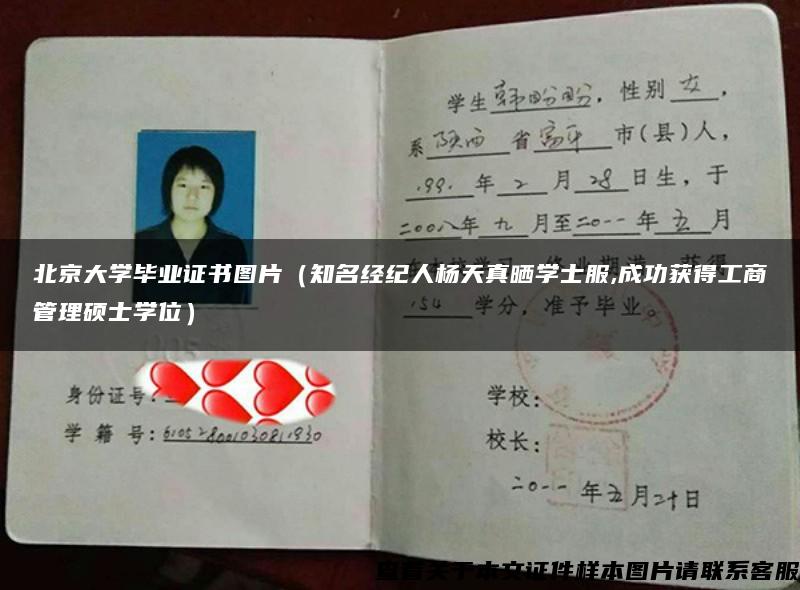 学生韩盼盼，性别女，
系陕西省富平市(县)人，
1991年2月28日生，于
二00八年九月至二0一一年五月
北京大学毕业证书图片（知名经纪人杨天真晒学士服,成功获得工商
管理硕士学位）
154学分，准予毕业。
身份证号：
学籍号：
学校：
校长：
二0一一年五月二十日
查看关于本文证件样本图片请联系客服